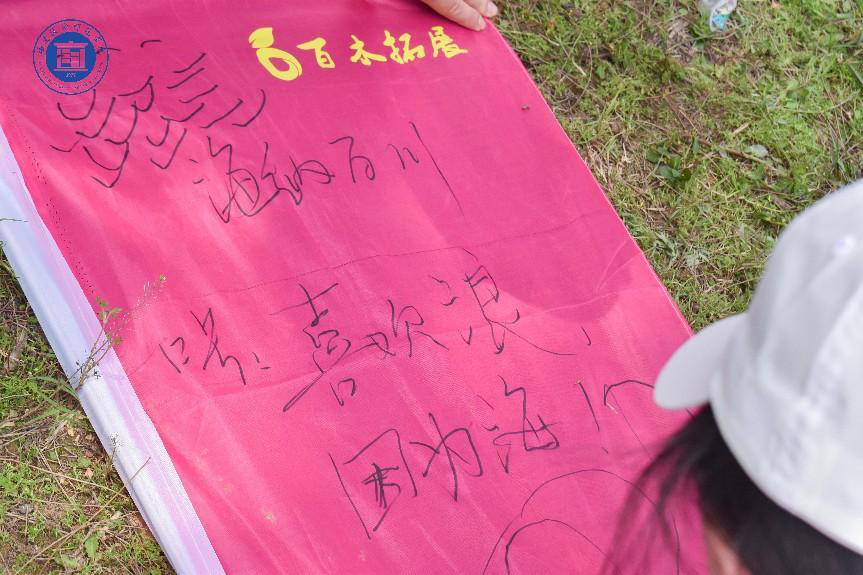 百木拓展
海纳百川
口号：喜欢浪，
因为海！